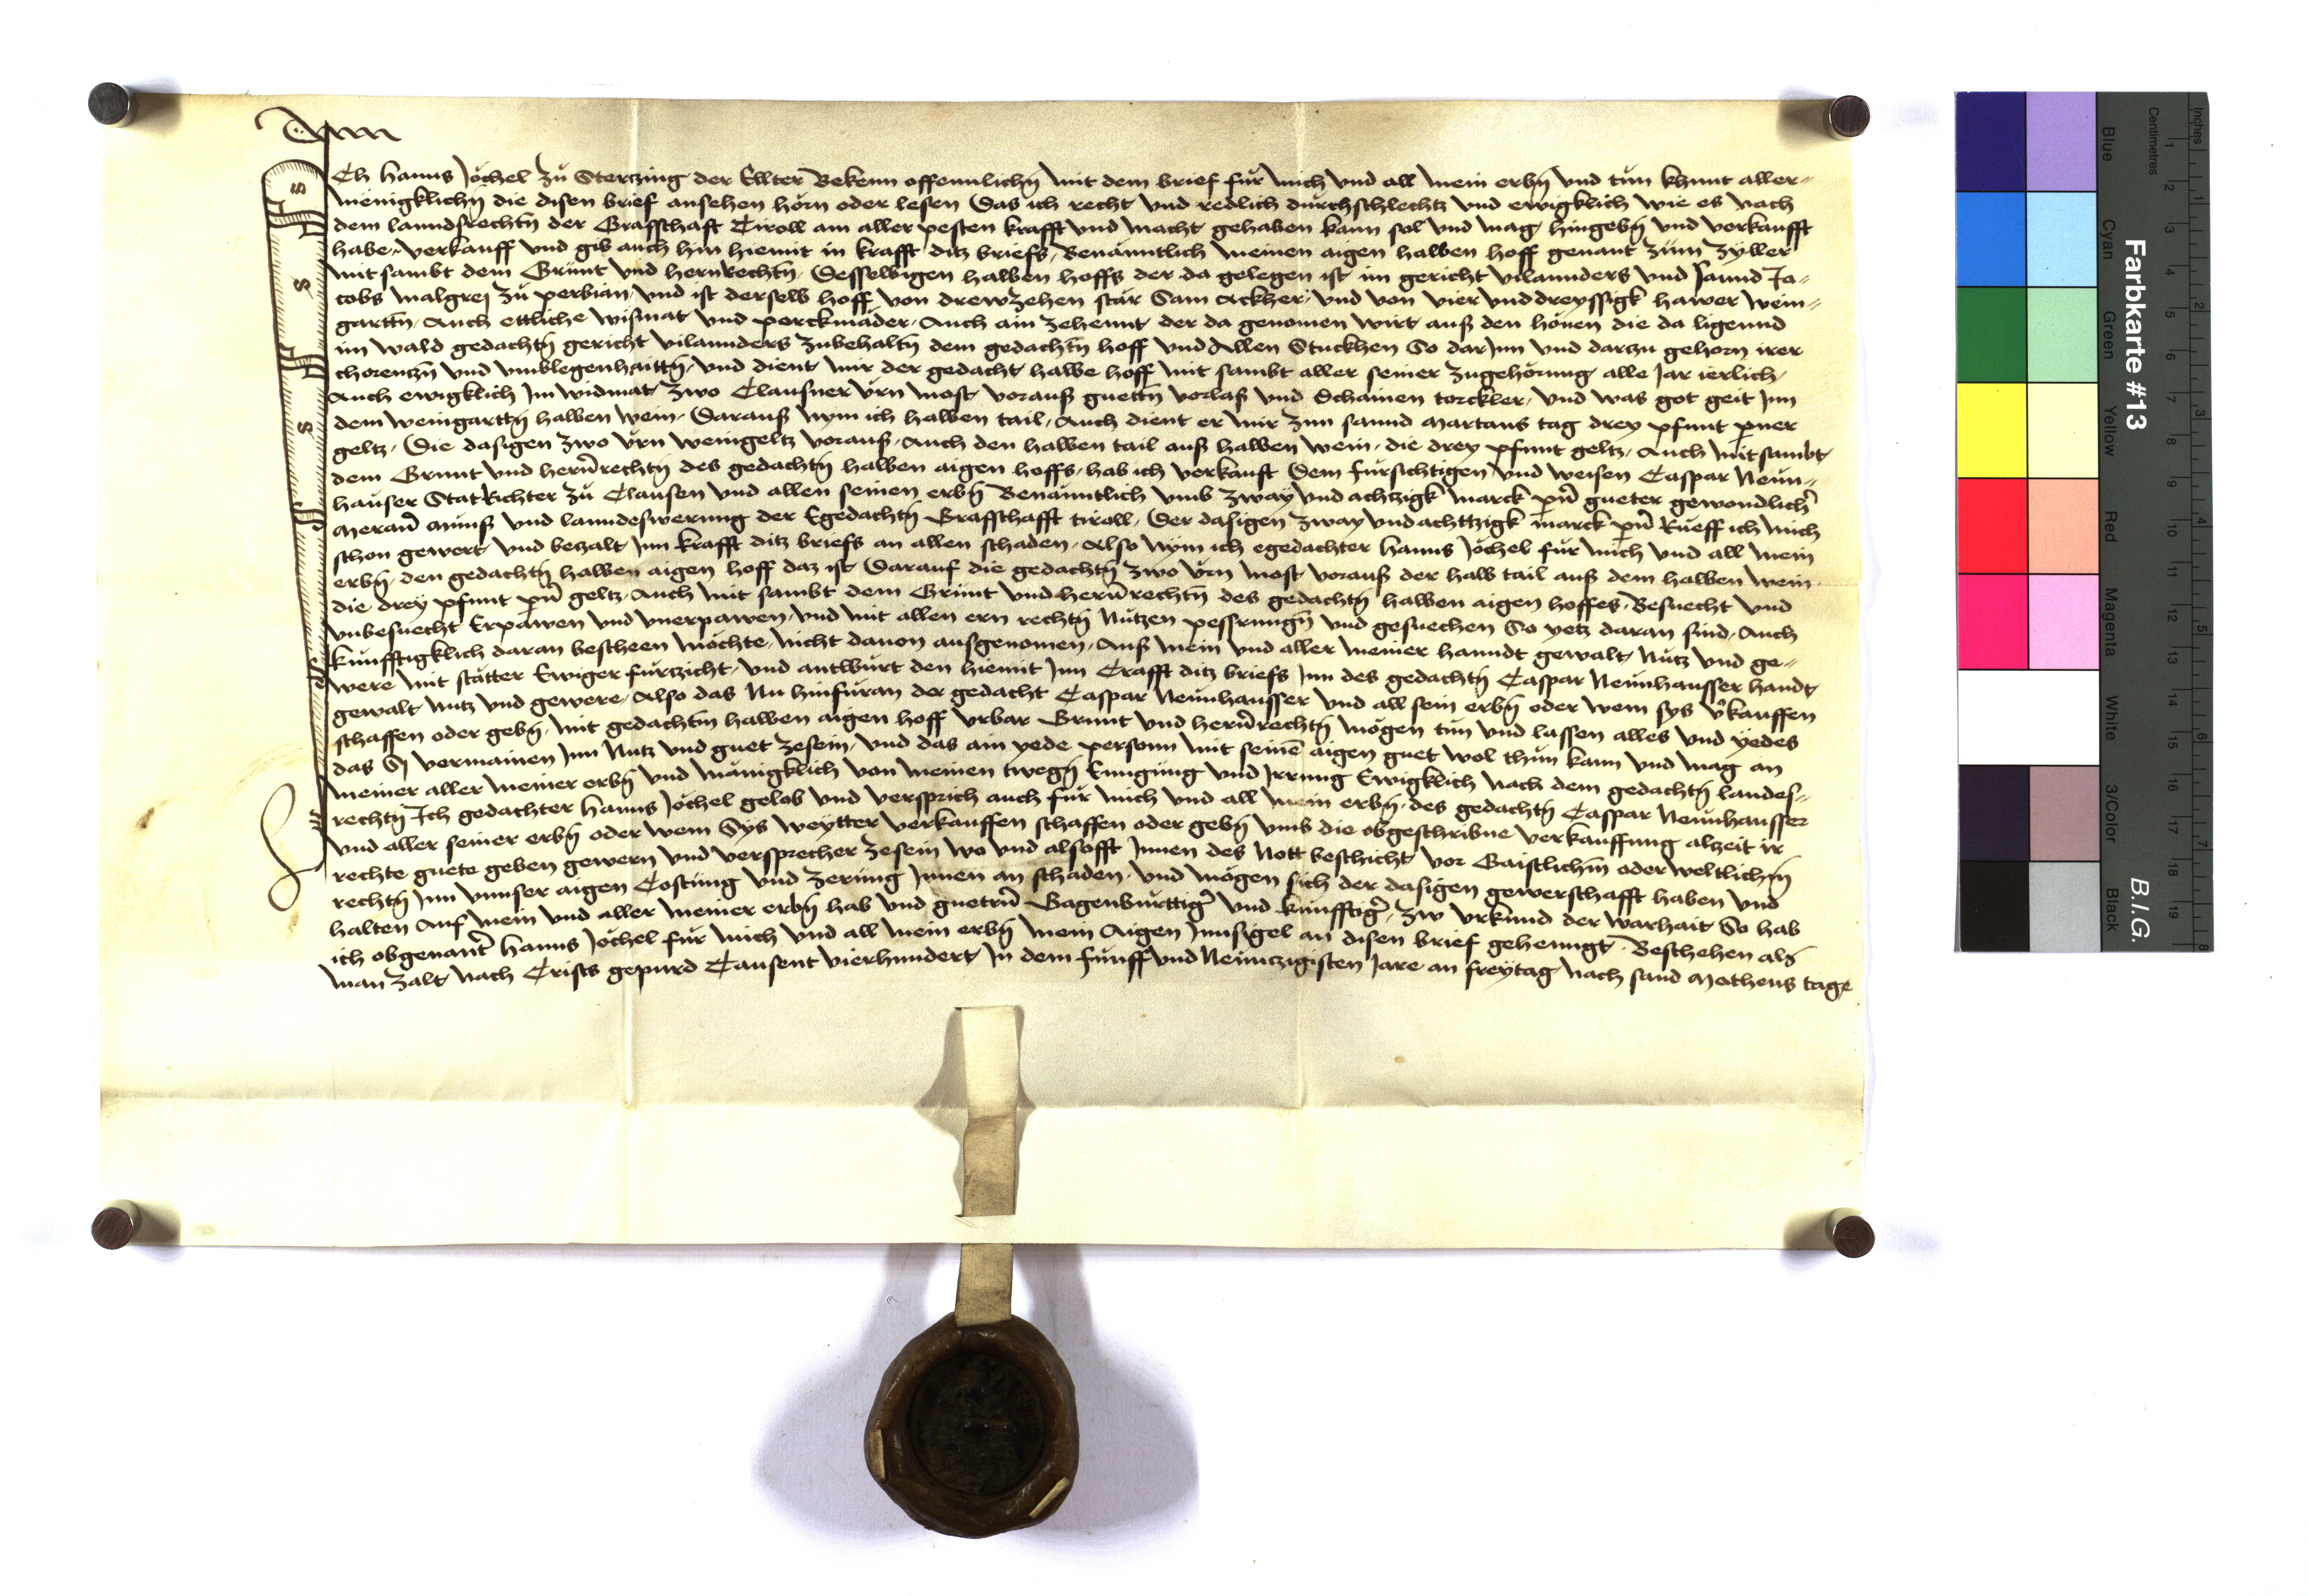 Ich Hanns Jöchel zü Stertzing der Ellter Bekenn offennlichn̄ mit dem brief für mich vnd all mein erbn̄ vnd tün khunt aller-
menigklichn̄ die disen brief ansehen hörn oder lesen Das ich recht vnd redlich dürchschlechtz vnd ewigklich wie es nach
dem lanndsrechtn̄ der Graffschaft Tiroll am aller pesten krafft vnd macht gehaben kann sol vnd mag hingebn̄ vnd verkaufft
habe, verkauff vnd gib auch hin hiemit in krafft ditz briefs, Benänntlich meinen aigen halben hoff genant zum Zyller
mit sambt dem Grünt vnd hernrechtn̄, Desselbigen halben hoffs der da gelegen ist im gericht vilannders vnd sannd Ja-
cobs malgrej zü perbian, vnd ist derselb hoff von drewzehen stär Sam Ackher, vnd von vier vnd dreyssigk hawer wein-
garttn̄, Auch ettliche wismat vnd perckmäder, Auch ain zehennt der da genomen wirt auß den höuen die da ligennd
im wald gedachtn̄ gericht vilannders zubehaltn̄ dem gedachtn̄ hoff vnd Allen Stuckhen So dar Inn vnd darzu gehorn irer
chorentzn̄ vnd vmblegenhaittn̄, vnd dient mir der gedacht halbe hoff mit sambt aller seiner zugehörung alle Jar ierlich,
Auch ewigklich Im widmat zwo Clausner vrn most vorauß guettn̄ vorlaß vnd Schainen torckler, vnd was got geit Inn
dem weingarttn̄ halben wein, Darauß nym ich halben tail, Auch dient er mir zun sannd Martans tag drey pfunt perner
geltz, Die dasigen zwo vrn weingeltz vorauß, Auch den halben tail auß halben wein, die drey pfunt geltz, Auch mitsambt
dem Grunt vnd hern̄rechtn̄ des gedachtn̄ halben aigen hoffs, hab ich verkauft Dem fürsichtigen vnd weisen Caspar Neun-
hauser StatRichter zü Clausen vnd allen seinen erbn̄ Benänntlich vmb zway vnd achtzigk marck pn̄ gueter gewondlich̄
Meran̄ münß vnd lanndeswerung der Egedachtn̄ Graffschafft tiroll, Der dasigen zway vnd achttzigk marck pn̄ Rueff ich mich
schon gewert vnd betzalt Inn krafft ditz briefs an allen schaden, Also nym ich egedachter Hanns Jöchel für mich vnd all mein
erbn̄, den gedachtn̄ halben aigen hoff daz ist Darauf die gedachtn̄ zwo vrn most vorauß der halb tail auß dem halben wein
die drey pfunt pn̄ geltz, Auch mit sambt dem Grünt vnd hern̄rechtn̄ des gedachtn̄ halben aigen hoffes, Besuecht vnd
vnbesuecht Erpawen vnd vnerpawen, vnd mit allen ern rechtn̄ nützen pessrungn̄ vnd gesuechen So yetz daran sind, Auch
künfftigklich daran bescheen möchte, nicht dauon ausgenomen, Auß mein vnd aller meiner hanndt gewalt, nütz vnd ge-
were mit stätter Ewiger fürzicht, vnd antwürt den hiemit Inn Crafft ditz briefs Inn des gedachtn̄ Caspar Neunhausser handt
gewalt, nutz vnd gewere, Also das Nu hinfüran der gedacht Caspar Neunhausser vnd all sein erbn̄ oder wem sys v̄kauffen
schaffen oder gebn̄, mit gedachtm halben aigen hoff vrbar Grunt vnd hern̄rechtn̄ mögen tün vnd lassen alles vnd yedes
das Sj vermainen Inn Nutz vnd guet zesein, vnd das ain yede personn mit seine̅ aigen guet wol thün kann vnd mag an
meiner aller meiner erbn̄ vnd mänigklich von meinen twegn̄ Enngüng vnd Irrung Ewigklich nach dem gedachtn̄ landes-
rechtn̄ Ich gedachter Hanns Jöchel gelob vnd versprich auch für mich vnd all mein erbn̄, des gedachtn̄ Caspar Neunhausser
vnd aller seiner erbn̄ oder wem Sys weytter verkauffen schaffen oder gebn̄ vmb die obgeschribne verkauffung alzeit ir
rechte guete geben gewern vnd versprecher zesein wo vnd alsofft Innen des Nott beschicht, vor Gaistlichn̄ oder weltlichn̄
rechtn̄ Inn vnnser aigen Costüng vnd zerüng Innen an schaden, vnd mögen sich der dasigen gewerschafft haben vnd
halten Auf mein vnd aller meiner erbn̄ hab vnd guetrn̄ Gagenbürttiḡ vnd künfftiḡ, zw vrkund der warhait So hab
ich obgenan̄t Hanns Jöchel für mich vnd all mein erbn̄ mein Aigen Innsigel an disen brief gehenngt, Beschehen als
man zalt nach Crists gepurd Tausent vierhundert In dem fünff vnd Neuntzigisten Jare an freytag nach sand Matheus tage
Farbkarte #13
B.I.G.
Inches
Centimetres
Blue Cyan Green Yellow Red Magenta White 3/Color Black
1 2 3 4 5 6 7 8 9 10 11 12 13 14 15 16 17 18 19
1 2 3 4 5 6 7 8